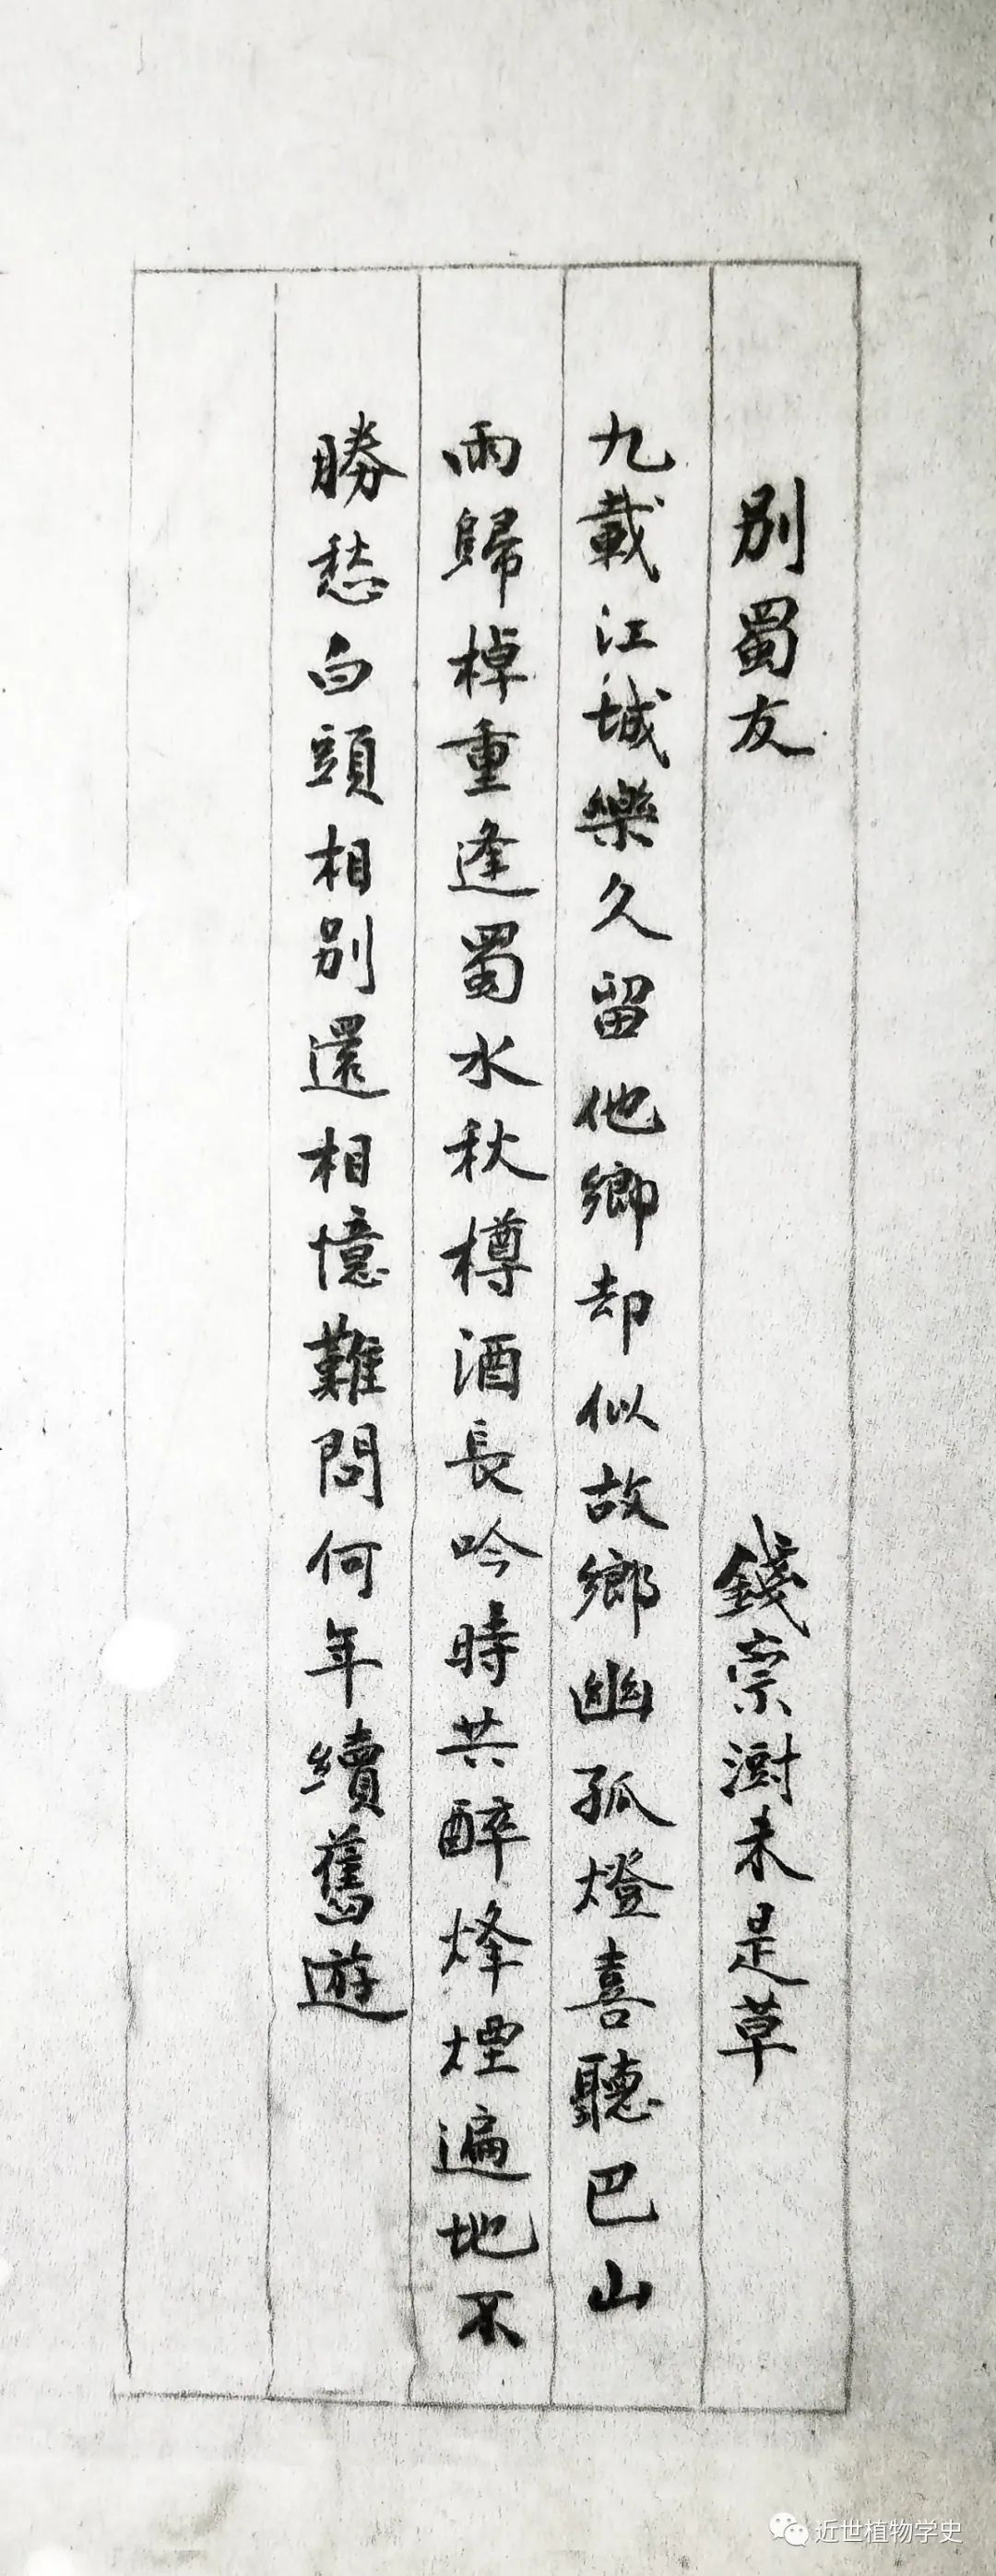 別蜀友 錢崇澍未是草
九載江城樂久留他鄉却似故鄉幽孤燈喜聽巴山
雨歸棹重逢蜀水秋樽酒長吟時共醉烽煙遍地不
勝愁白頭相別還相憶難問何年續舊遊
近世植物学史